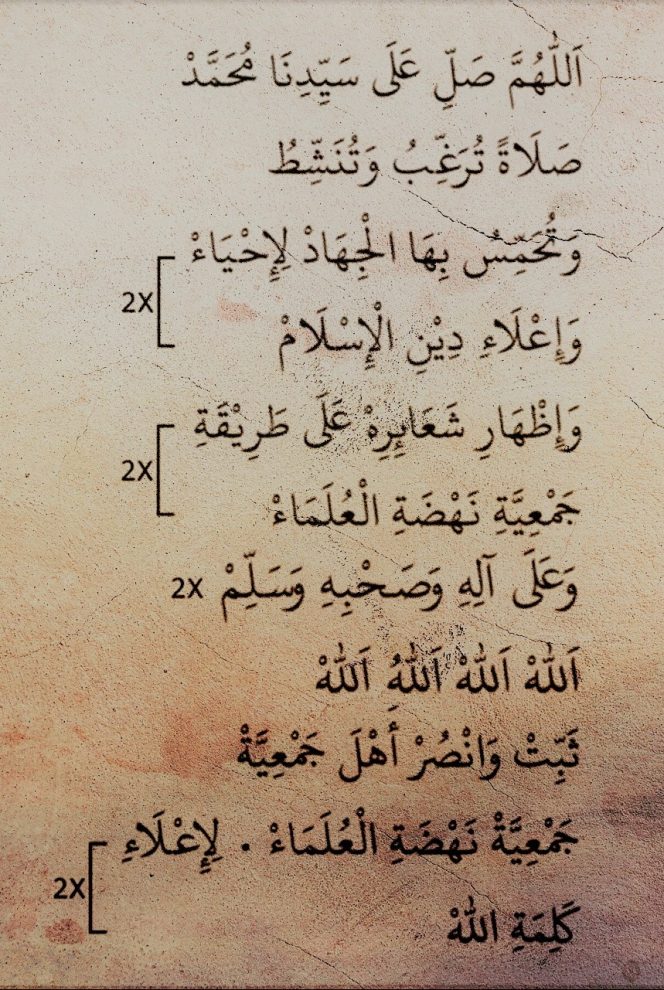 اَللّٰهُمَّ صَلِّ عَلَى سَيِّدِنَا مُحَمَّدْ
صَلَاةً تُرَغِّبُ وَتُنَشِّطُ
وَتُحَمِّسُ بِهَا الْجِهَادْ لِإِحْيَاءْ
2X
وَإِعْلَاءِ دِيْنِ الْإِسْلَامْ
وَإِظْهَارِ شَعَائِرِهْ عَلَى طَرِيْقَةِ
2X
جَمْعِيَّةِ نَهْضَةِ الْعُلَمَاءْ
وَعَلَى آلِهِ وَصَحْبِهِ وَسَلِّمْ 2X
اَللّٰهْ اَللّٰهْ اَللّٰهُ اَللّٰهْ
ثَبِّتْ وَانْصُرْ أَهْلَ جَمْعِيَّةْ
جَمْعِيَّةْ نَهْضَةِ الْعُلَمَاءْ . لِإِعْلَاءِ
2X
كَلِمَةِ اللّٰهْ